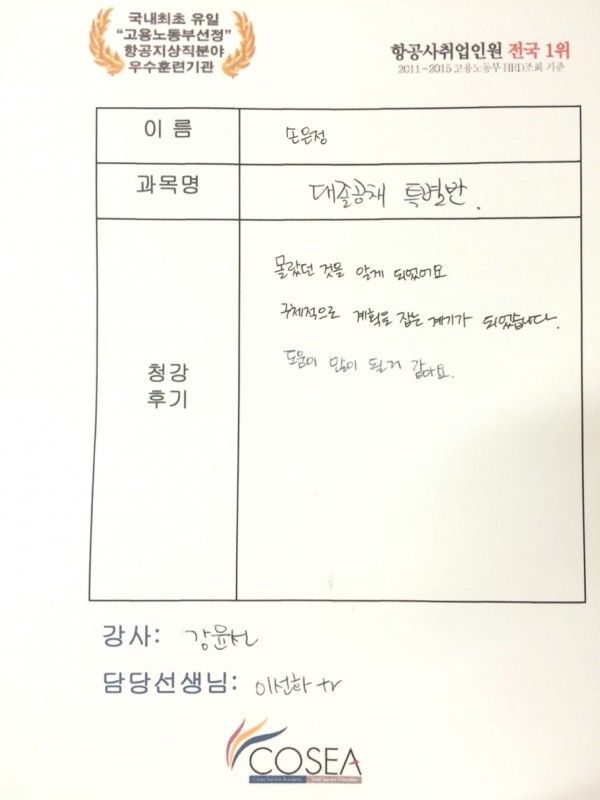 국내최초 유일
“고용노동부선정”
항공지상직분야
우수훈련기관
항공사취업인원 전국 1위
2011-2015 고용노동부 HRD조회 기준
이 름
손은정
과목명
대졸공채 특별반.
청강
후기
몰랐던 것을 알게 되었어요
구체적으로 계획을 잡는 계기가 되었습니다.
도움이 많이 될거 같아요.
강사: 강윤서
담당선생님: 이선화 tr
COSEA